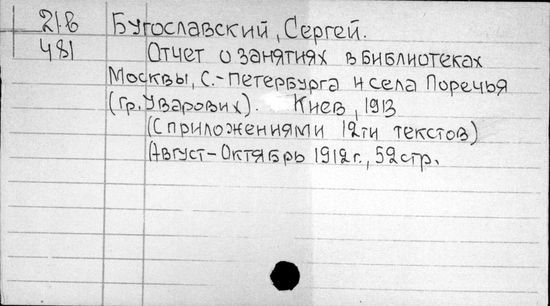 21.в Бугославский, Сергей.
481 Отчет о занятиях в библиотеках
Москвы, С.-Петербурга и села Поречья
(гр. Уварових). Киев, 1913
(С приложениями 12ти текстов)
Август-Октябрь 1912 г., 52 стр.